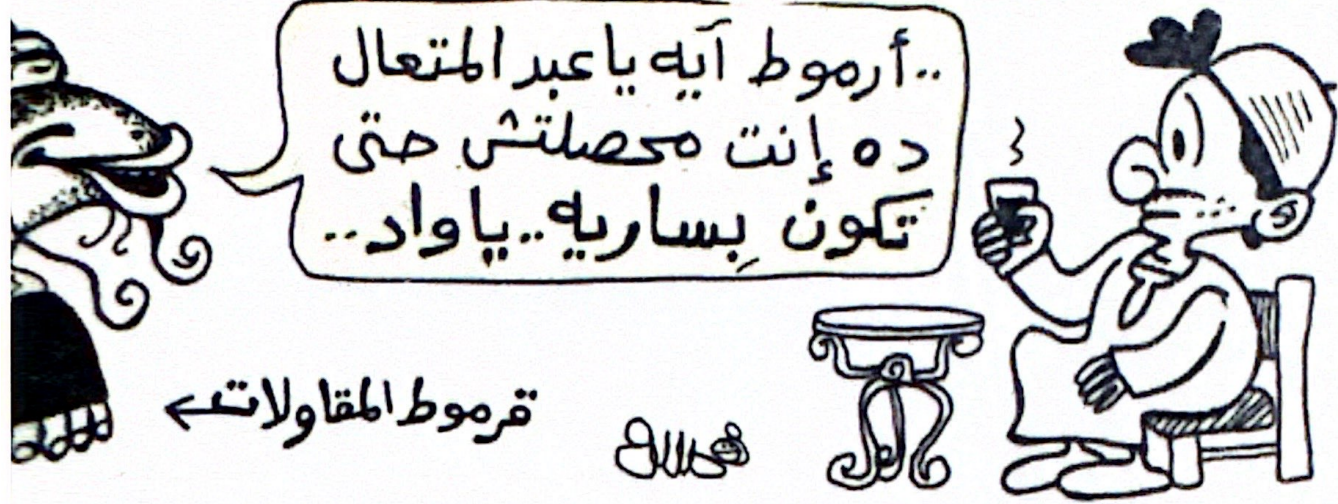 ..أرموط آيه يا عبد المتعال
ده إنت محصلتش حتى
تكون بِساريه.. يا واد..
قرموط المقاولات